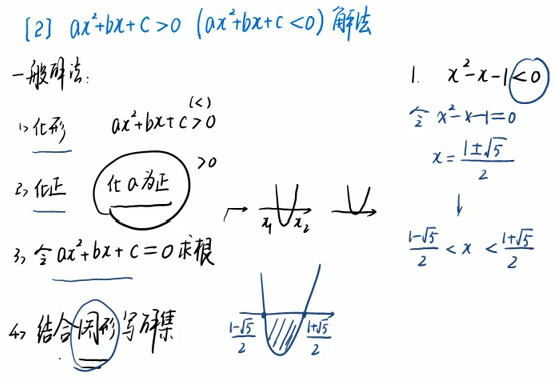 [2] ax²+bx+c>0 (ax²+bx+c<0) 解法
一般解法:
1> 化形 ax²+bx+c>0
(<)
2> 化正 化a为正 >0
x₁ x₂
3> 令 ax²+bx+c=0 求根
4> 结合图形写解集
(1-√5)/2 (1+√5)/2
1. x²-x-1<0
令 x²-x-1=0
x=(1±√5)/2
↓
(1-√5)/2 < x < (1+√5)/2